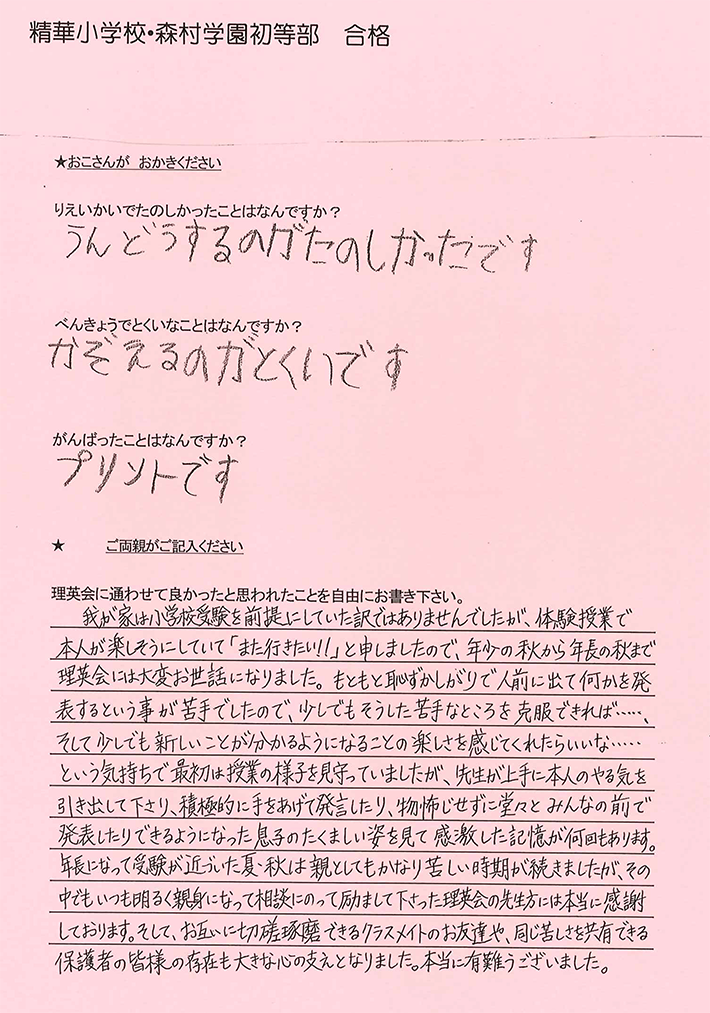 精華小学校・森村学園初等部　合格
★おこさんが　おかきください
りえいかいでたのしかったことはなんですか？
うんどうするのがたのしかったです
べんきょうでとくいなことはなんですか？
かぞえるのがとくいです
がんばったことはなんですか？
プリントです
★　ご両親がご記入ください
理英会に通わせて良かったと思われたことを自由にお書き下さい。
我が家は小学校受験を前提にしていた訳ではありませんでしたが、体験授業で
本人が楽しそうにしていて「また行きたい!!」と申しましたので、年少の秋から年長の秋まで
理英会には大変お世話になりました。もともと恥ずかしがりで人前に出て何かを発
表するという事が苦手でしたので、少しでもそうした苦手なところを克服できれば……、
そして少しでも新しいことが分かるようになることの楽しさを感じてくれたらいいな……
という気持ちで最初は授業の様子を見守っていましたが、先生が上手に本人のやる気を
引き出して下さり、積極的に手をあげて発言したり、物怖じせずに堂々とみんなの前で
発表したりできるようになった息子のたくましい姿を見て感激した記憶が何回もあります。
年長になって受験が近づいた夏・秋は親としてもかなり苦しい時期が続きましたが、その
中でもいつも明るく親身になって相談にのって励まして下さった理英会の先生方には本当に感謝
しております。そして、お互いに切磋琢磨できるクラスメイトのお友達や、同じ苦しさを共有できる
保護者の皆様の存在も大きな心の支えとなりました。本当に有難うございました。